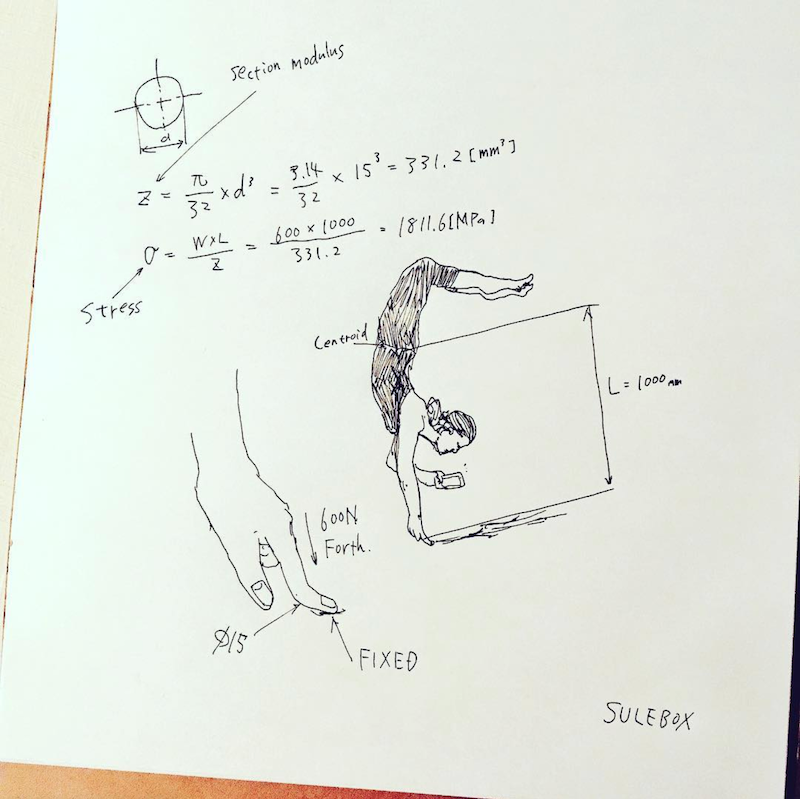 section modulus
d
Z = π/32 × d³ = 3.14/32 × 15³ = 331.2 [mm³]
σ = W×L/Z = 600×1000/331.2 = 1811.6 [MPa]
Stress
Centroid
L = 1000 mm
600N
Forth.
Ø15
FIXED
SULEBOX